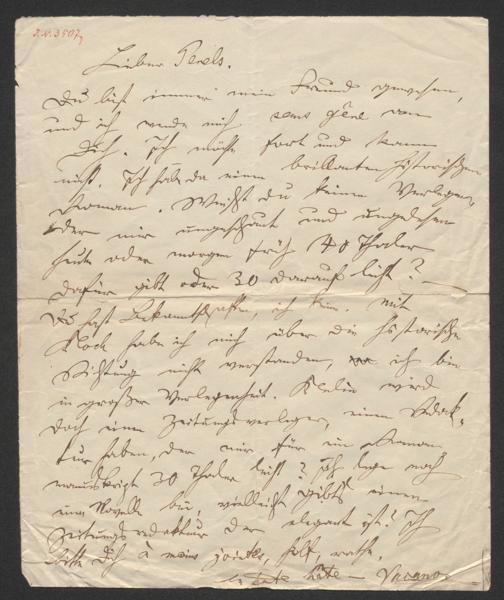 J.N. 3507
Lieber Perls.
Du bist immer mein Freund gewesen,
und ich wende mich sans gêne an
Dich. Ich möchte fort und kann
nicht. Ich hab da einen brillanten historischen
Roman. Weißt du keinen Verleger,
der mir ungeschaut und ungelesen
heute oder morgen früh 40 Thaler
dafür gibt oder 30 darauf leiht?
Du hast Bekanntschaften, ich keine. Mit
habe ich mich über die historische
Richtung nicht verstanden, ich bin
in großer Verlegenheit. Berlin wird
doch einen Zeitungsverleger, einen Redak-
teur haben, der mir für ein Roman-
manuskript 30 Thaler leiht? Ich lege noch
eine Novelle bei, vielleicht gibts einen
Zeitungsredakteur der elegant ist! Ich
bitte Dich à mains jointes, hilf, rathe.
Vacano